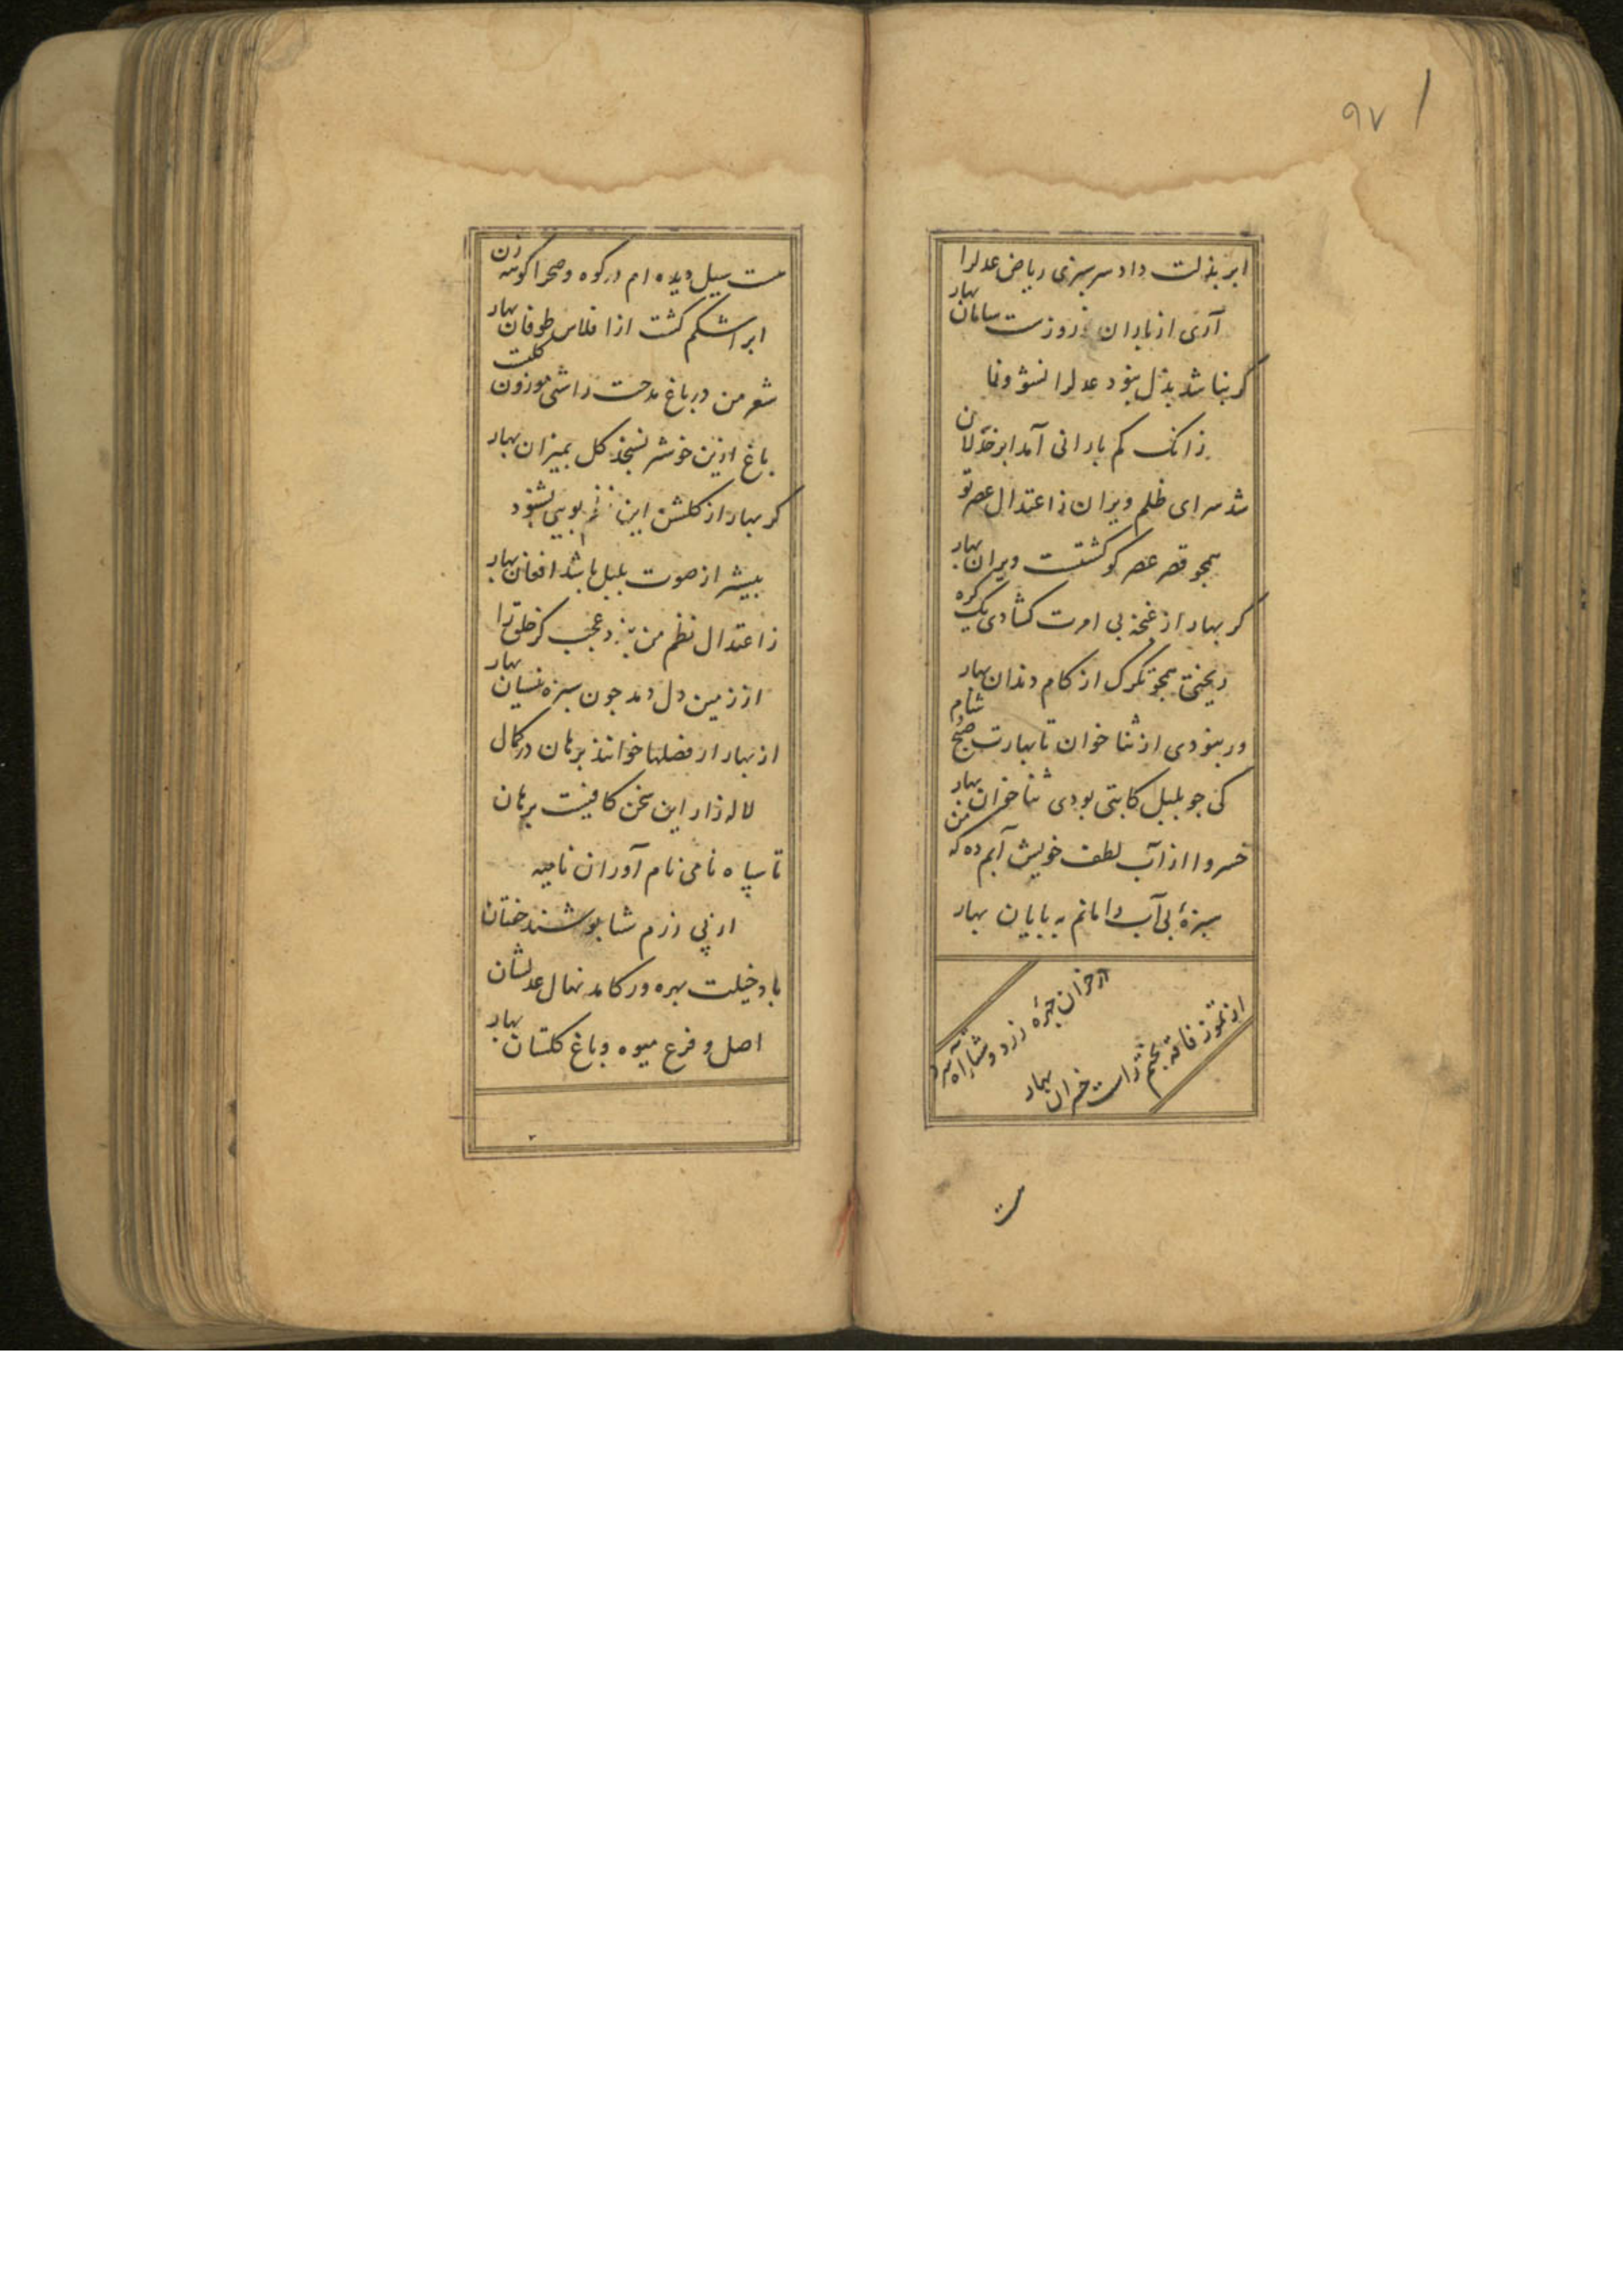 ۹۷
ابر بذلت داد سرسبزی ریاض عدلرا
آری از باران نوروزست سامان بهار
کر نباشد بذل نبود عدلرا نشو ونما
زانک کم بارانی آمد ابر خذلان
شد سرای ظلم ویران ز اعتدال عصر تو
همجو قصر عصر کو کشتست ویران بهار
کر بهار از غنجه بی امرت کشادی یک کره
ریختی همجو تکرک از کام دندان بهار
ور نبودی از ثنا خوان تا بهارت صبح شام
کی جو بلبل کابتی بودی ثنا خوان بهار
خسروا از آب لطف خویش آبم ده که من
سبزهٔ بی آب را مانم به بایان بهار
از خزان جهرهٔ زرد و شتا آه سرد
از تموز فاقه بختم راست خزان بهار
مست
مست سیل دیده ام در کوه و صحرا کوسه زن
ابر اشکم کشت از افلاس طوفان بهار
شعر من در باغ مدحت راستی موزون کلست
باغ ازین خوشتر نسنجد کل بمیزان بهار
کر بهار از کلشن این نظم بویی بشنود
بیشتر از صوت بلبل باشد افغان بهار
ز اعتدال نظم من نبود عجب کز خلق ترا
از زمین دل دمد جون سبزه نیسان بهار
از بهار ار فضلها خوانند برهان در کمال
لاله زار این سخن کافیست برهان
تا سپاه نامی نام آوران نامیه
از پی رزم شتا پوشند خفتان
باد خیلت بهره ور کامد نهال عدلشان
اصل و فرع میوه و باغ کلستان بهار